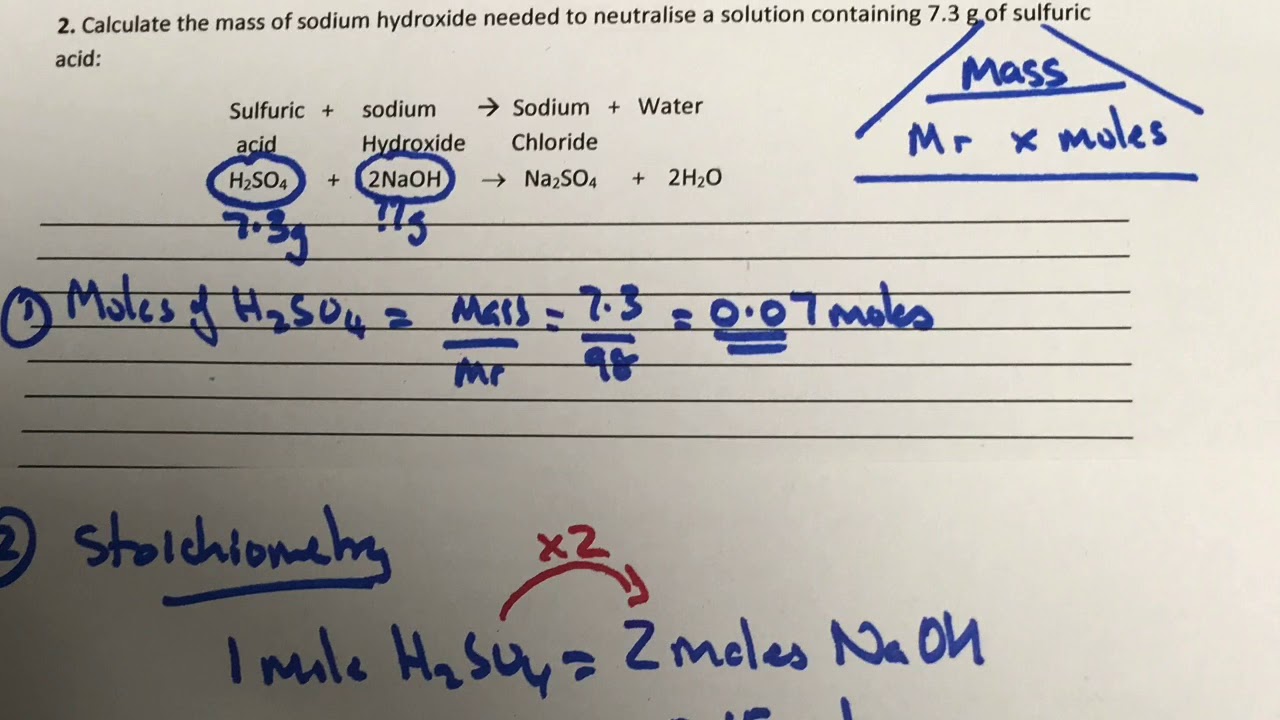 2. Calculate the mass of sodium hydroxide needed to neutralise a solution containing 7.3 g of sulfuric
acid:
Mass
Mr x moles
Sulfuric + sodium → Sodium + Water
acid Hydroxide Chloride
H₂SO₄ + 2NaOH → Na₂SO₄ + 2H₂O
7.3g ??g
1 Moles of H₂SO₄ = Mass/Mr = 7.3/98 = 0.07 moles
2 Stoichiometry
x2
1 mole H₂SO₄ = 2 moles NaOH